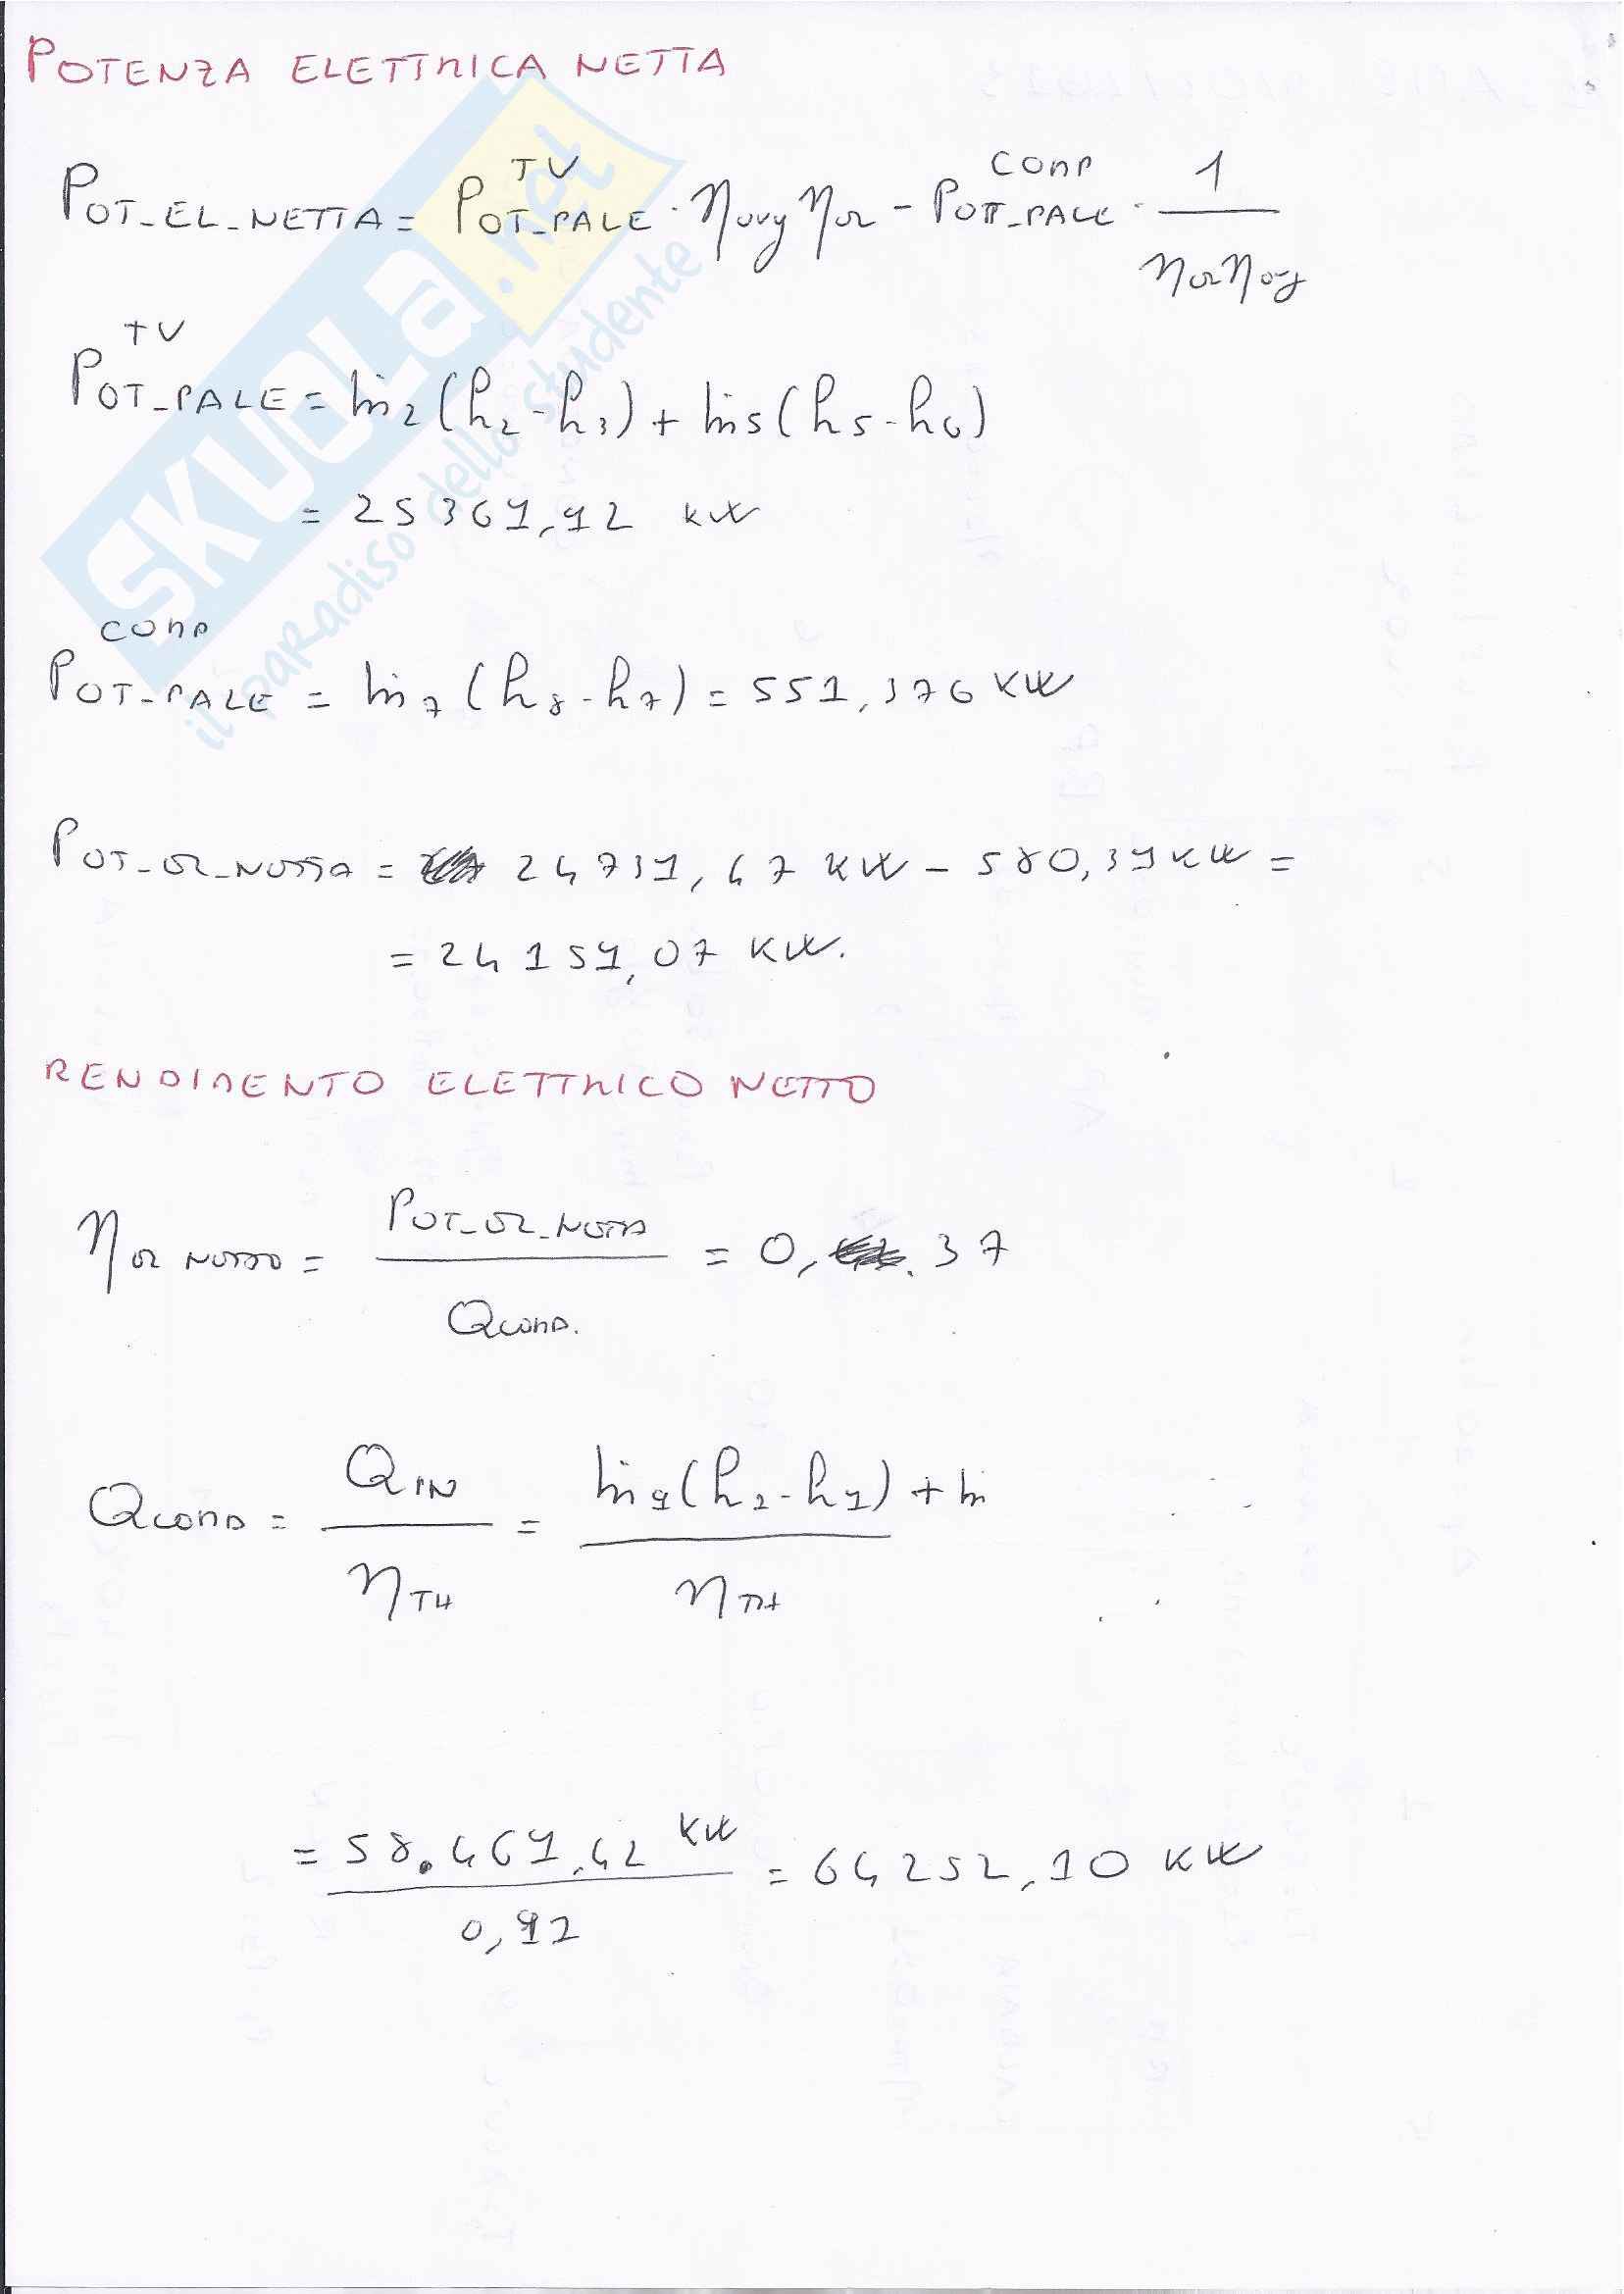 POTENZA ELETTRICA NETTA
POT_EL_NETTA = POT_PALE^TV · ηorg ηel - POT_PALE^COMP · 1/(ηel ηorg)
POT_PALE^TV = ṁ2(h2-h3) + ṁ5(h5-h6)
= 25361,12 kW
POT_PALE^COMP = ṁ7(h8-h7) = 551,376 KW
POT_EL_NETTA = 24731,47 KW - 580,39 KW =
= 24151,07 KW.
RENDIMENTO ELETTRICO NETTO
ηEL NETTO = POT_EL_NETTA / Qcomb. = 0,37
Qcomb = QIN / ηTH = ṁ1(h2-h1) + ṁ / ηTH
= 58.461,42 KW / 0,92 = 64252,10 KW
SKUOLA.net
il paradiso dello studente